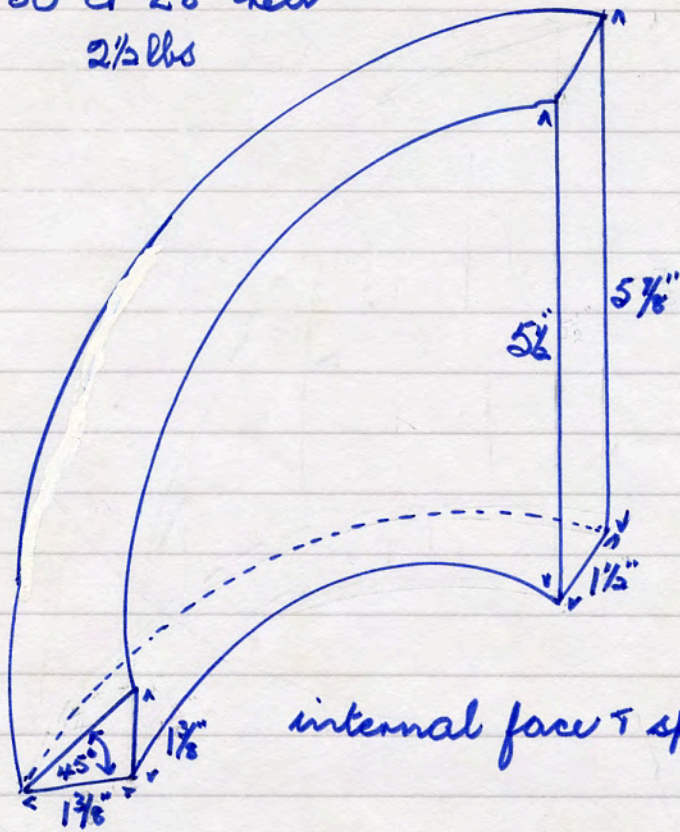 2½ lbs
5⅞"
5½"
1½"
1⅜"
45°
1⅜"
internal face